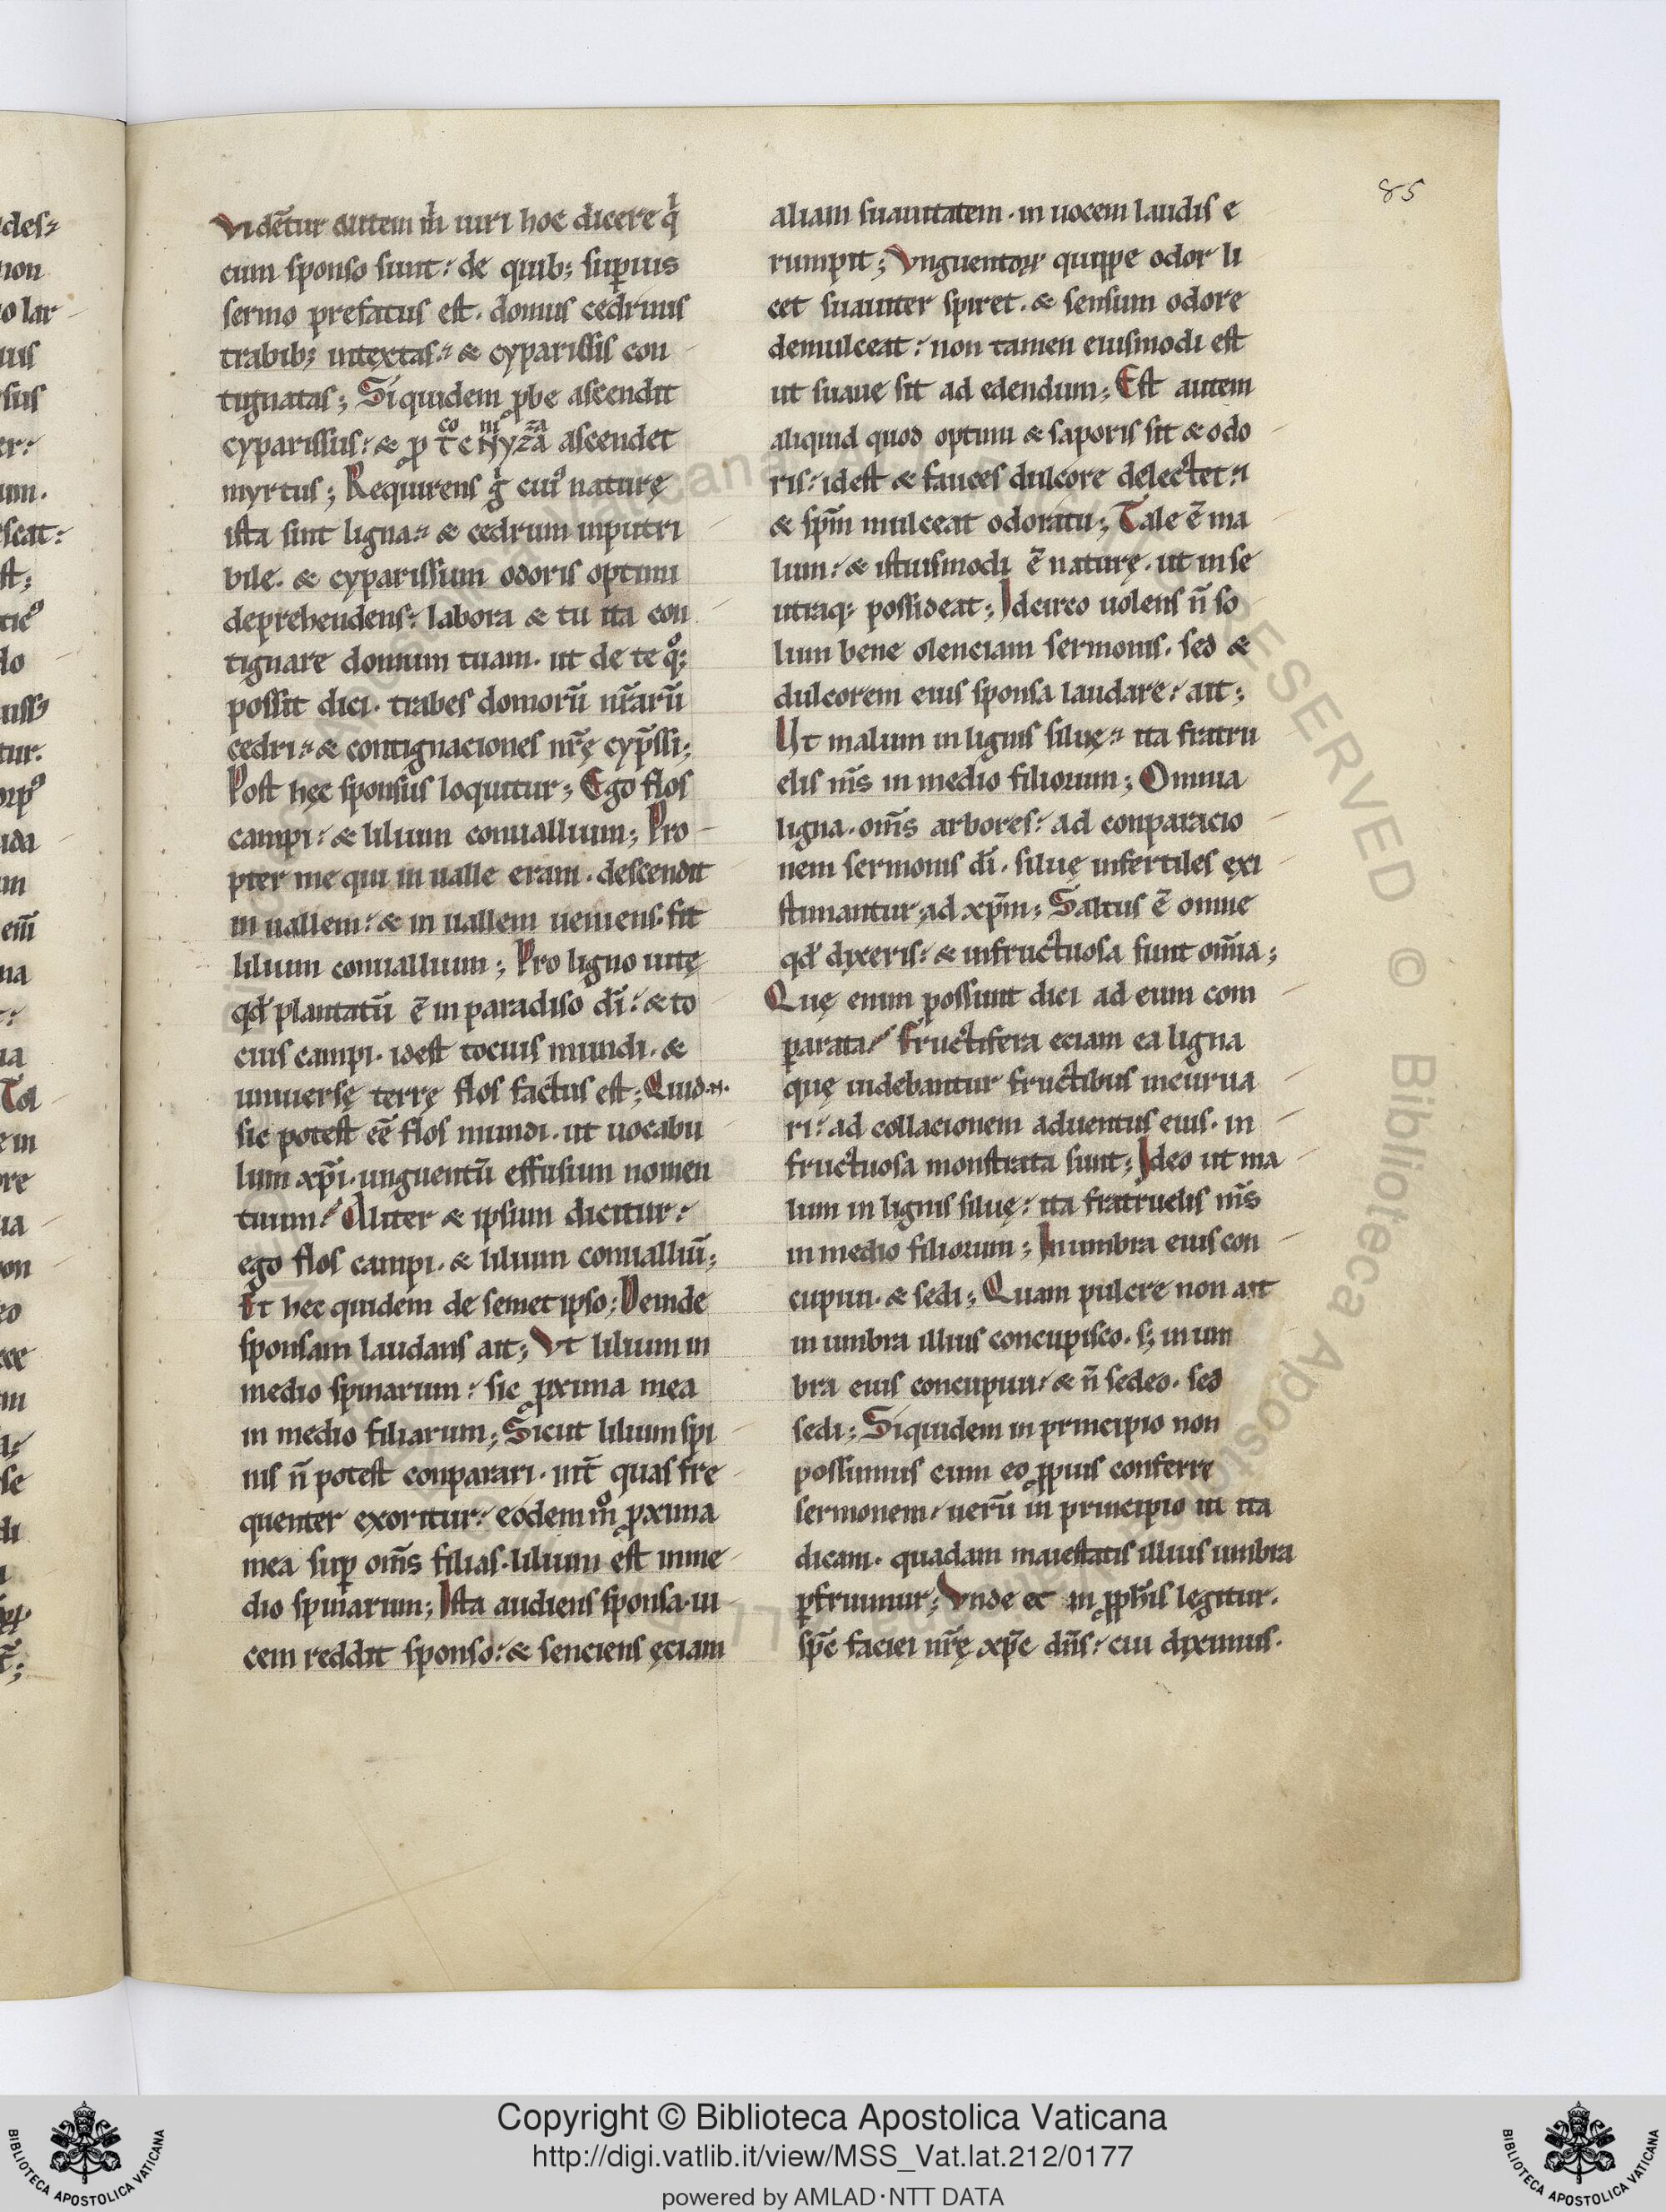 85
Vidẽtur autem m̃ uiri hoc dicere q̇
cum sponso sunt: de quib; sup̱ius
sermo prefatus est. domus cedrinis
trabib; intextas: & cyparissis con
tignatas; Siquidem ꝓ be ascendit
cyparissus: & ꝓ tenyza ascendet
co ni za
myrtus; Requirens g̊ cui᷒ naturę
ista sint ligna: & cedrum inputri
bile. & cyparissum odoris optimi
deprehendens: labora & tu ita con
tignare domum tuam. ut de te q̊;
possit dici. trabes domorũ nr̃arũ
cedri: & contignaciones nr̃ę cyp̃ssi;
Post hęc sponsus loquitur; Ego flos
campi: & lilium conuallium; Pro
pter me qui in ualle eram. descendit
in uallem: & in uallem ueniens. fit
lilium conuallium; Pro ligno uitę
qđ plantatũ ẽ in paradiso dĩ: & to
cius campi. idest tocius mundi. &
uniuersę terrę flos factus est; Quid .n.
sic potest eẽ flos mundi. ut uocabu
lum xp̃i. unguentũ effusum nomen
tuum: Aliter & ipsum dicitur:
ego flos campi. & lilium conualliũ;
Et hec quidem de semet ipso; Deinde
sponsam laudans ait; Vt lilium in
medio spinarum: sic ꝓxima mea
in medio filiarum; Sicut lilium spi
nis ñ potest conparari. int̃ quas fre
quenter exoritur: eodem m̊ ꝓxima
mea sup̱ om̃s filias. lilium est in me
dio spinarum; Ista audiens sponsa. ui
cem reddit sponso: & senciens ęciam
aliam suauitatem. in uocem laudis e
rumpit; Vnguentoꝝ quippe odor li
cet suauiter spiret. & sensum odore
demulceat: non tamen eiusmodi est
ut suaue sit ad edendum; Est autem
aliquid quod optimi & saporis sit & odo
ris: idest & fauces dulcore delectet:
& sp̃m mulceat odoratu; Tale ẽ ma
lum: & istiusmodi ẽ naturę. ut in se
utraq; possideat; Idcirco uolens ñ so
lum bene olenciam sermonis. sed &
dulcorem eius sponsa laudare: ait;
Ut malum in lignis siluę: ita fratru
elis m̃s in medio filiorum; Omnia
ligna. om̃s arbores: ad conparacio
nem sermonis dĩ. siluę infertiles exi
stimantur; ad xp̃m; Saltus ẽ omne
qđ dixeris: & infructuosa sunt om̃ia;
Quę enim possunt dici ad eum com
parata: Fructifera eciam ea ligna
quę uidebantur fructibus incurua
ri: ad collacionem aduentus eius. in
fructuosa monstrata sunt; Ideo ut ma
lum in lignis siluę: ita fratruelis m̃s
in medio filiorum; In umbra eius con
cupiui. & sedi; Quam pulcre non ait
in umbra illius concupisco. s; in um
bra eius concupiui: & ñ sedeo. sed
sedi; Siquidem in principio non
possumus cum eo ꝓpius conferre
sermonem: uerũ in principio ut ita
dicam. quadam maiestatis illius umbra
p̱fruimur; Vnde et in ꝓph̃is legitur.
sp̃c faciei nr̃ę xp̃c dñs: cui diximus.
des:
non
o lar
sus
er:
scat:
st;
do
tur.
ida
em̃
na
Tol
e in
ore
on
se
di
Copyright © Biblioteca Apostolica Vaticana
http://digi.vatlib.it/view/MSS_Vat.lat.212/0177
powered by AMLAD･NTT DATA
BIBLIOTECA APOSTOLICA VATICANA
BIBLIOTECA APOSTOLICA VATICANA